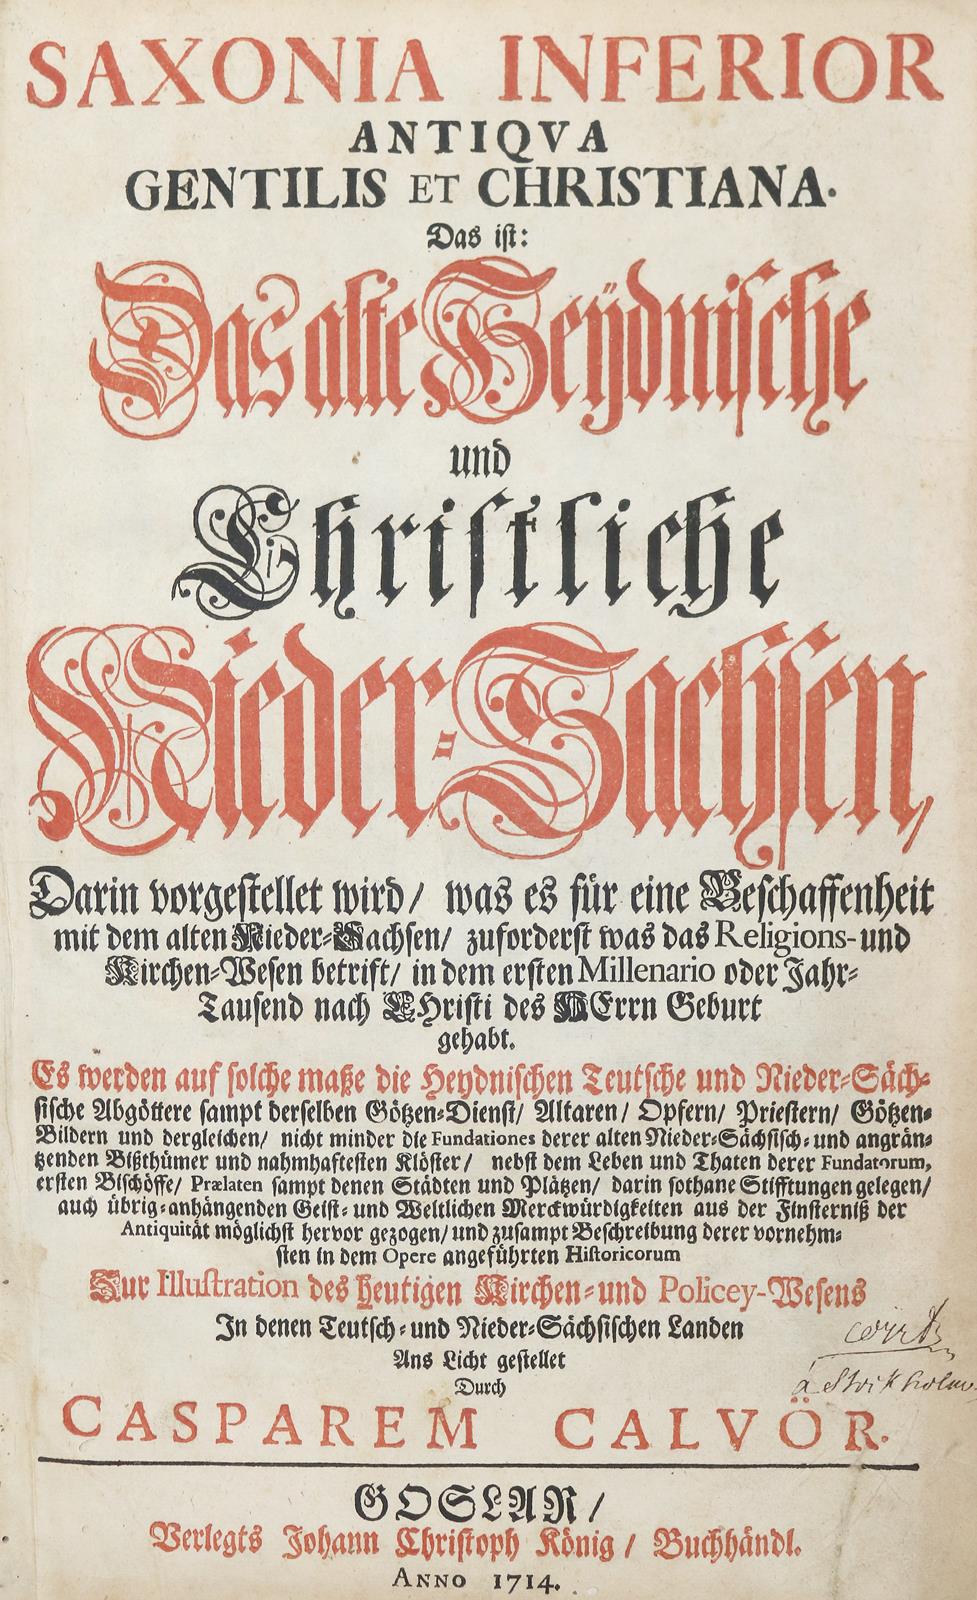 SAXONIA INFERIOR
ANTIQVA
GENTILIS ET CHRISTIANA.
Das ist:
Das alte Heÿdnische
und
Christliche
Nieder-Sachsen,
Darin vorgestellet wird/ was es für eine Beschaffenheit
mit dem alten Nieder-Sachsen/ zuforderst was das Religions- und
Kirchen-Wesen betrift/ in dem ersten Millenario oder Jahr-
Tausend nach CHristi des HErrn Geburt
gehabt.
Es werden auf solche maße die Heydnischen Teutsche und Nieder-Säch-
sische Abgöttere sampt derselben Götzen-Dienst/ Altaren/ Opfern/ Priestern/ Götzen-
Bildern und dergleichen/ nicht minder die Fundationes derer alten Nieder-Sächsisch- und angrän-
tzenden Bißthümer und nahmhaftesten Klöster/ nebst dem Leben und Thaten derer Fundatorum,
ersten Bischöffe/ Prælaten sampt denen Städten und Plätzen/ darin sothane Stifftungen gelegen/
auch übrig-anhängenden Geist- und Weltlichen Merckwürdigkeiten aus der Finsterniß der
Antiquität möglichst hervor gezogen/ und zusampt Beschreibung derer vornehm-
sten in dem Opere angeführten Historicorum
Zur Illustration des heutigen Kirchen- und Policey-Wesens
In denen Teutsch- und Nieder-Sächsischen Landen
Ans Licht gestellet
Durch
CASPAREM CALVÖR.
GOSLAR/
Verlegts Johann Christoph König/ Buchhändl.
ANNO 1714.